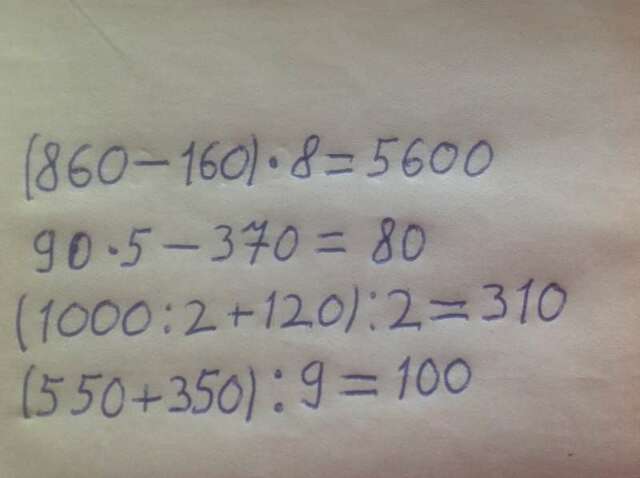 (860-160)·8=5600
90·5-370=80
(1000:2+120):2=310
(550+350):9=100